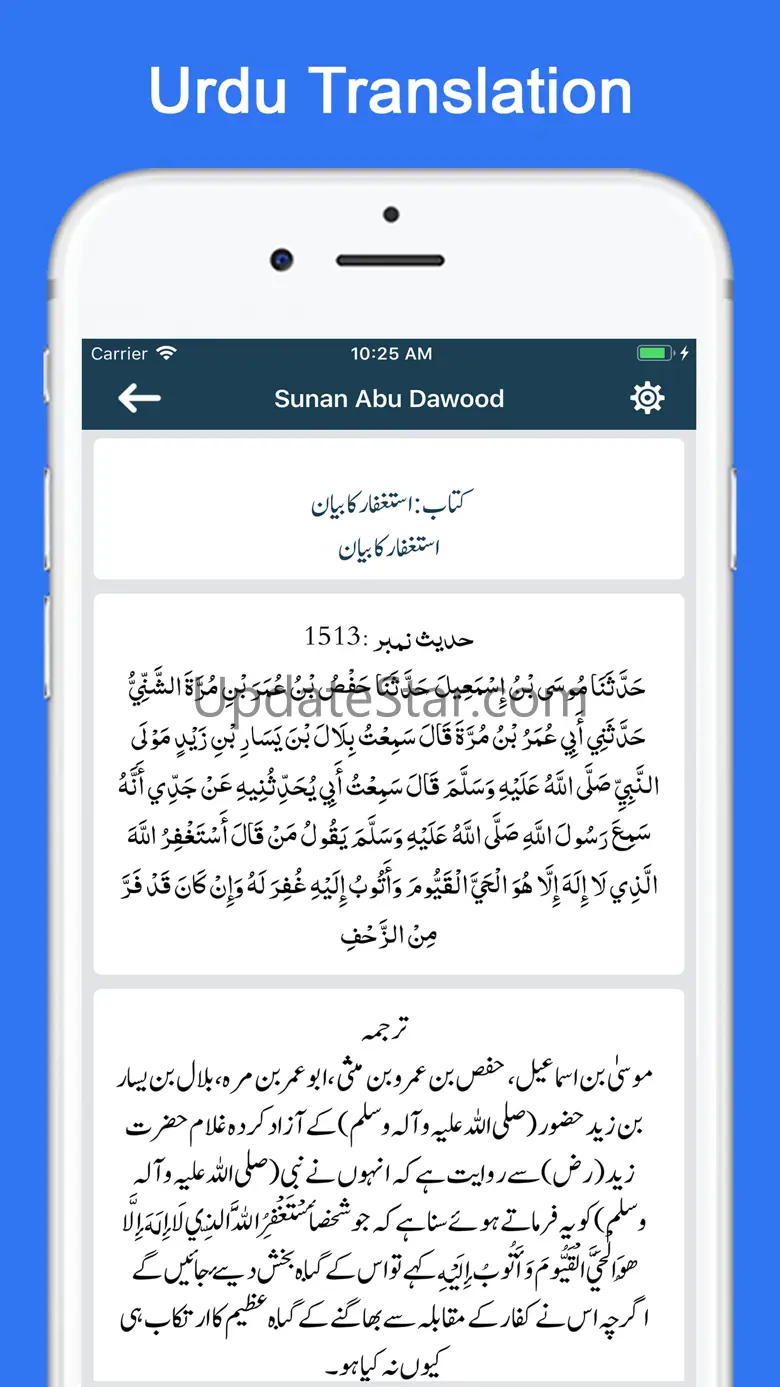 Urdu Translation
Carrier 10:25 AM
Sunan Abu Dawood
کتاب: استغفار کا بیان
استغفار کا بیان
حدیث نمبر :1513
حَدَّثَنَا مُوسَى بْنُ إِسْمَعِيلَ حَدَّثَنَا حَفْصُ بْنُ عُمَرَ بْنِ مُرَّةَ الشَّنِّيُّ
UpdateStar.com
حَدَّثَنِي أَبِي عُمَرُ بْنُ مُرَّةَ قَالَ سَمِعْتُ بِلَالَ بْنَ يَسَارِ بْنِ زَيْدٍ مَوْلَى
النَّبِيِّ صَلَّى اللَّهُ عَلَيْهِ وَسَلَّمَ قَالَ سَمِعْتُ أَبِي يُحَدِّثُنِيهِ عَنْ جَدِّي أَنَّهُ
سَمِعَ رَسُولَ اللَّهِ صَلَّى اللَّهُ عَلَيْهِ وَسَلَّمَ يَقُولُ مَنْ قَالَ أَسْتَغْفِرُ اللَّهَ
الَّذِي لَا إِلَهَ إِلَّا هُوَ الْحَيَّ الْقَيُّومَ وَأَتُوبُ إِلَيْهِ غُفِرَ لَهُ وَإِنْ كَانَ قَدْ فَرَّ
مِنْ الزَّحْفِ
ترجمہ
موسیٰ بن اسماعیل، حفص بن عمرو بن مثی، ابوعمر بن مرہ، بلال بن یسار
بن زید حضور (صلی اللہ علیہ وآلہ وسلم) کے آزاد کردہ غلام حضرت
زید (رض) سے روایت ہے کہ انہوں نے نبی (صلی اللہ علیہ وآلہ
وسلم) کو یہ فرماتے ہوئے سنا ہے کہ جو شخص أَسْتَغْفِرُ اللَّهَ الَّذِي لَا إِلَهَ إِلَّا
هُوَ الْحَيَّ الْقَيُّومَ وَأَتُوبُ إِلَيْهِ کہے تو اس کے گناہ بخش دیئے جائیں گے
اگرچہ اس نے کفار کے مقابلہ سے بھاگنے کے گناہ عظیم کا ارتکاب ہی
کیوں نہ کیا ہو۔